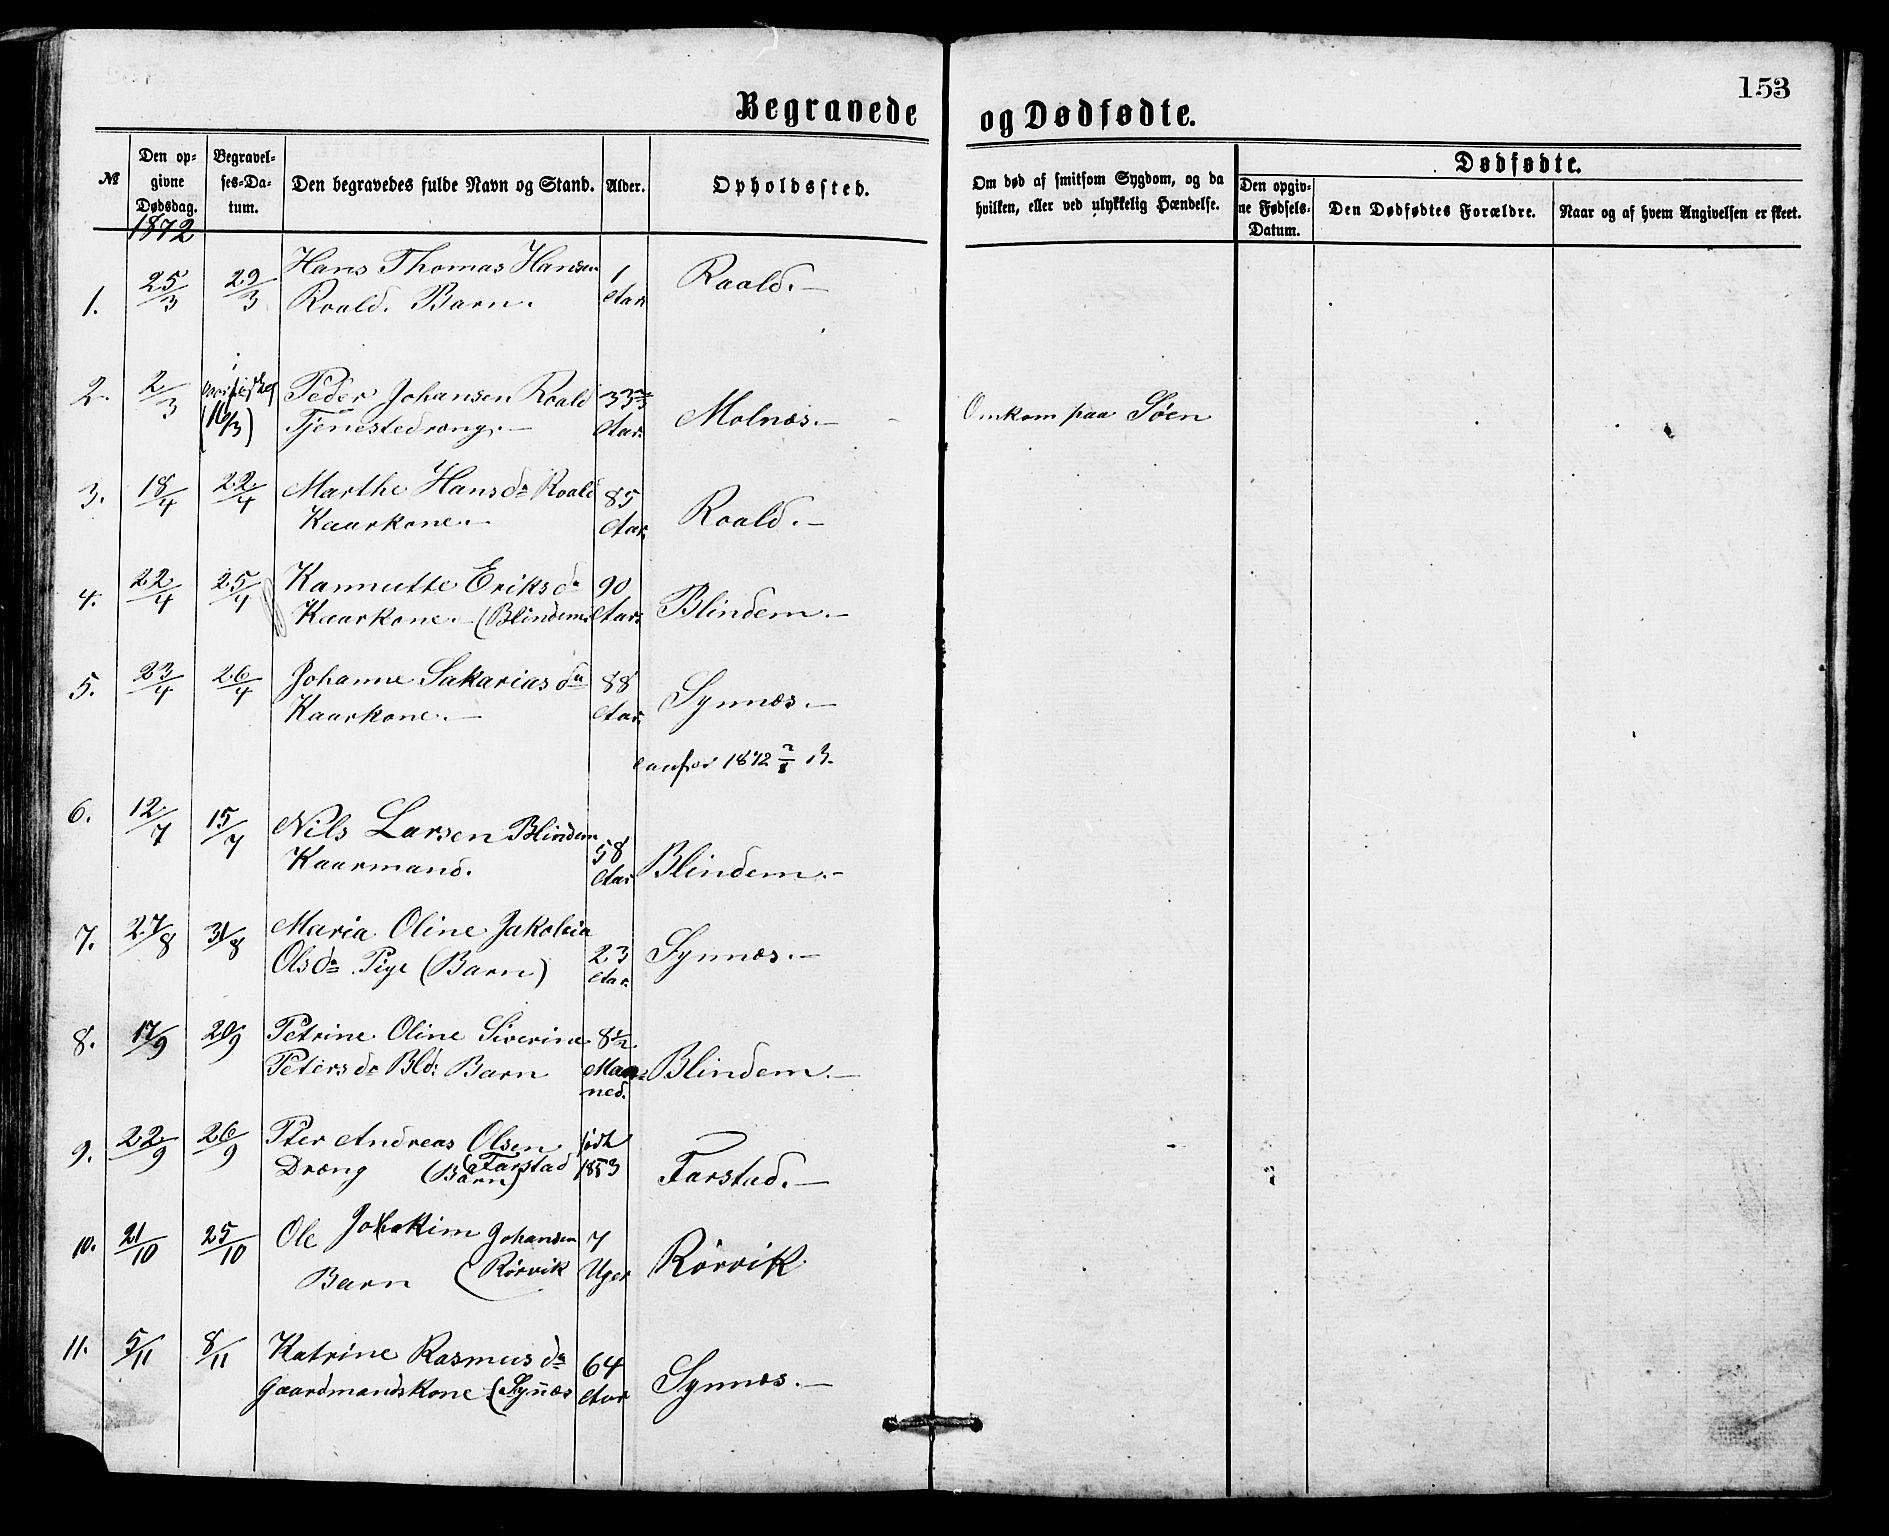 153
Begravede og Dødfødte.
№
Den opgivne Dødsdag.
Begravelses-Datum.
Den begravedes fulde Navn og Stand.
Alder.
Opholdssted.
Om død af smitsom Sygdom, og da
hvilken, eller ved ulykkelig Hændelse.
Dødfødte.
Den opgivne Fødsels-Datum.
Den Dødfødtes Forældre.
Naar og af hvem Angivelsen er skeet.
1872
1. 25/3 29/3 Hans Thomas Hansen 1 Roald.—
Roald. Barn. Aar
2. 2/3 (10/3) Peder Johansen Roald 33 Molnæs.— Omkom paa Søen
Tjenestedreng.— Aar.
3. 18/4 22/4 Marthe Hansda Roald 85 Roald.—
Kaarkone.— Aar.
4. 22/4 25/4 Kannutte Eriksda 90 Blindem.—
Kaarkone.— (Blindem Aar.
5. 23/4 26/4 Johanne Sakariasda 88 Synnæs.—
Kaarkone.— Aar.
1872
6. 12/7 15/7 Nils Larsen Blindem 58 Blindem.—
Kaarmand. Aar
7. 27/8 31/8 Maria Oline Jakobia 23 Synnæs.—
Olsda Pige (Barn) Aar.
8. 17/9 20/9 Petrine Oline Siverine 8½ Blindem.—
Petersda Bld: Barn Maa-
ned.
9. 22/9 26/9 Pter Andreas Olsen født Farstad.—
Dreng (Farstad 1853
(Barn)
10. 21/10 25/10 Ole Johakim Johansen 7 Rörvik
Barn (Rörvik Uger
11. 5/11 8/11 Katrine Rasmusda 64 Synnæs.—
Gaardmandskone (Synnæs Aar